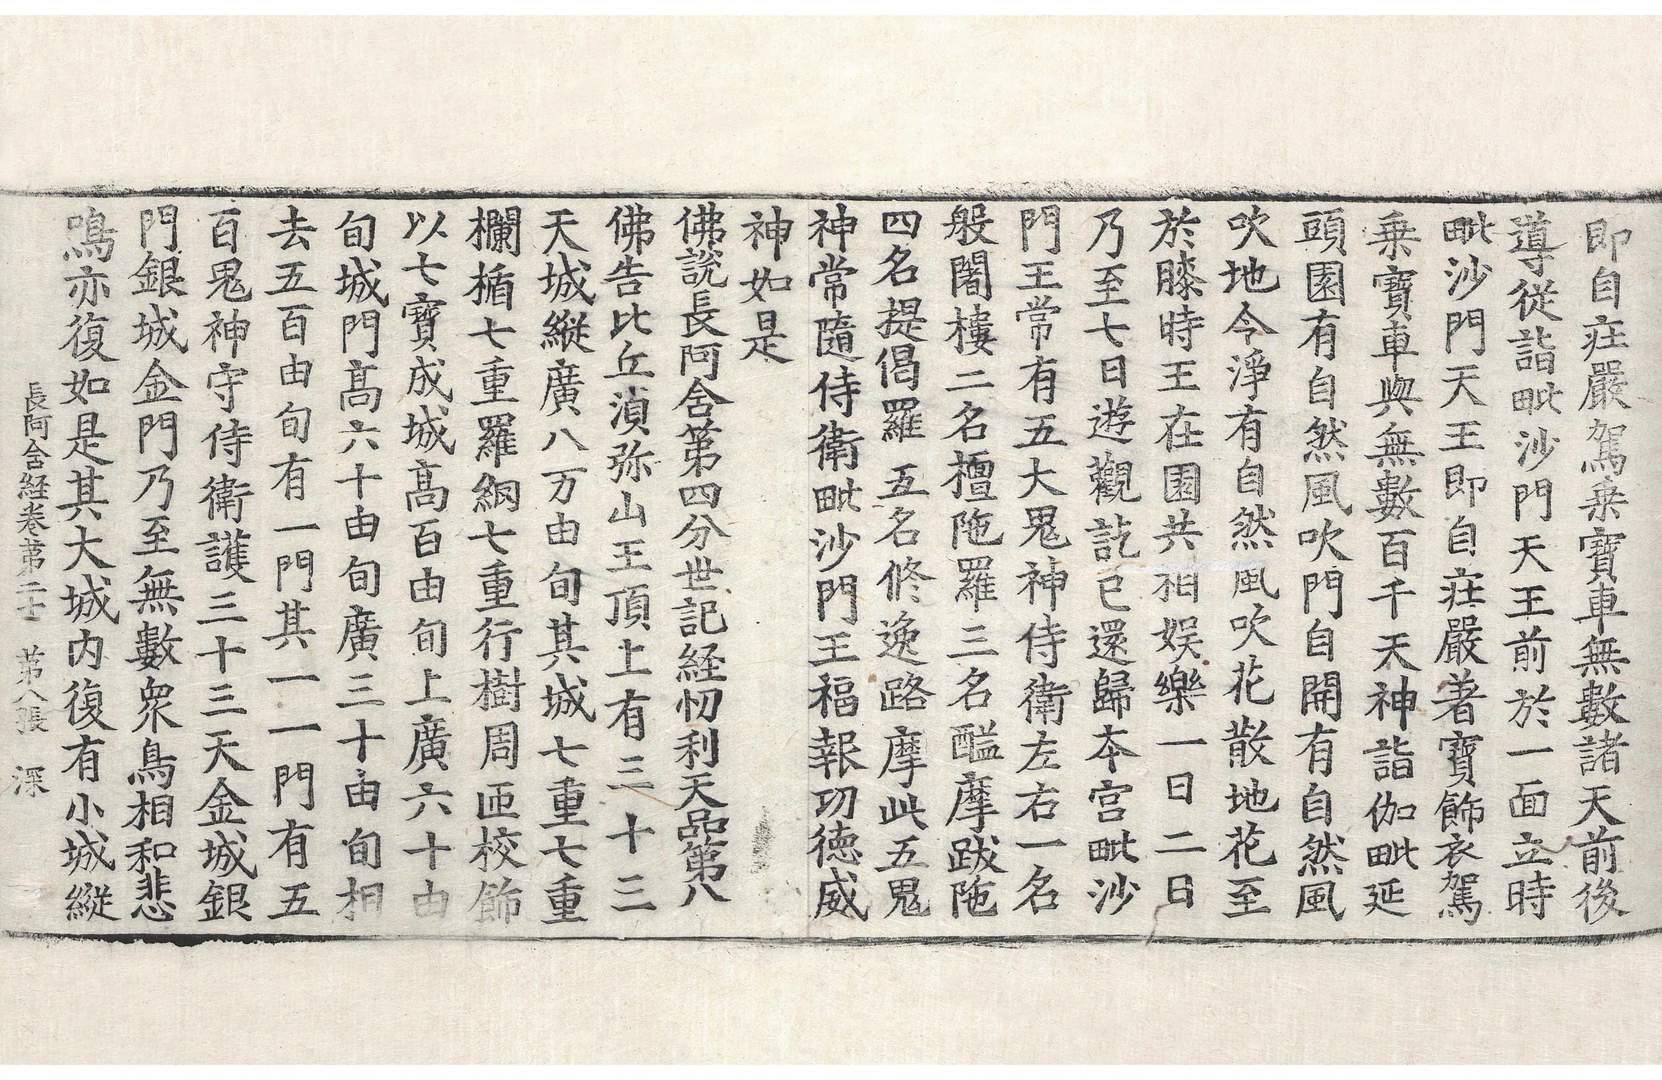 即自庄嚴駕乗寶車無數諸天前後
導從詣毗沙門天王前於一面立時
毗沙門天王即自庄嚴著寶飾衣駕
乗寶車與無數百千天神詣伽毗延
頭園有自然風吹門自開有自然風
吹地令淨有自然風吹花散地花至
於膝時王在園共相娱樂一日二日
乃至七日遊觀訖已還歸夲宫毗沙
門王常有五大鬼神侍衛左右一名
般闍樓二名檀陁羅三名醯摩跋陁
四名提偈羅五名修逸路摩此五鬼
神常隨侍衛毗沙門王福報功德威
神如是
佛說長阿含第四分世記経忉利天品第八
佛告比丘湏弥山王頂上有三十三
天城縱廣八万由旬其城七重七重
欄楯七重羅網七重行樹周匝校飾
以七寶成城髙百由旬上廣六十由
旬城門髙六十由旬廣三十由旬相
去五百由旬有一門其一一門有五
百鬼神守侍衛護三十三天金城銀
門銀城金門乃至無數衆鳥相和悲
鳴亦復如是其大城内復有小城縱
長阿含経卷第二十 第八張 深